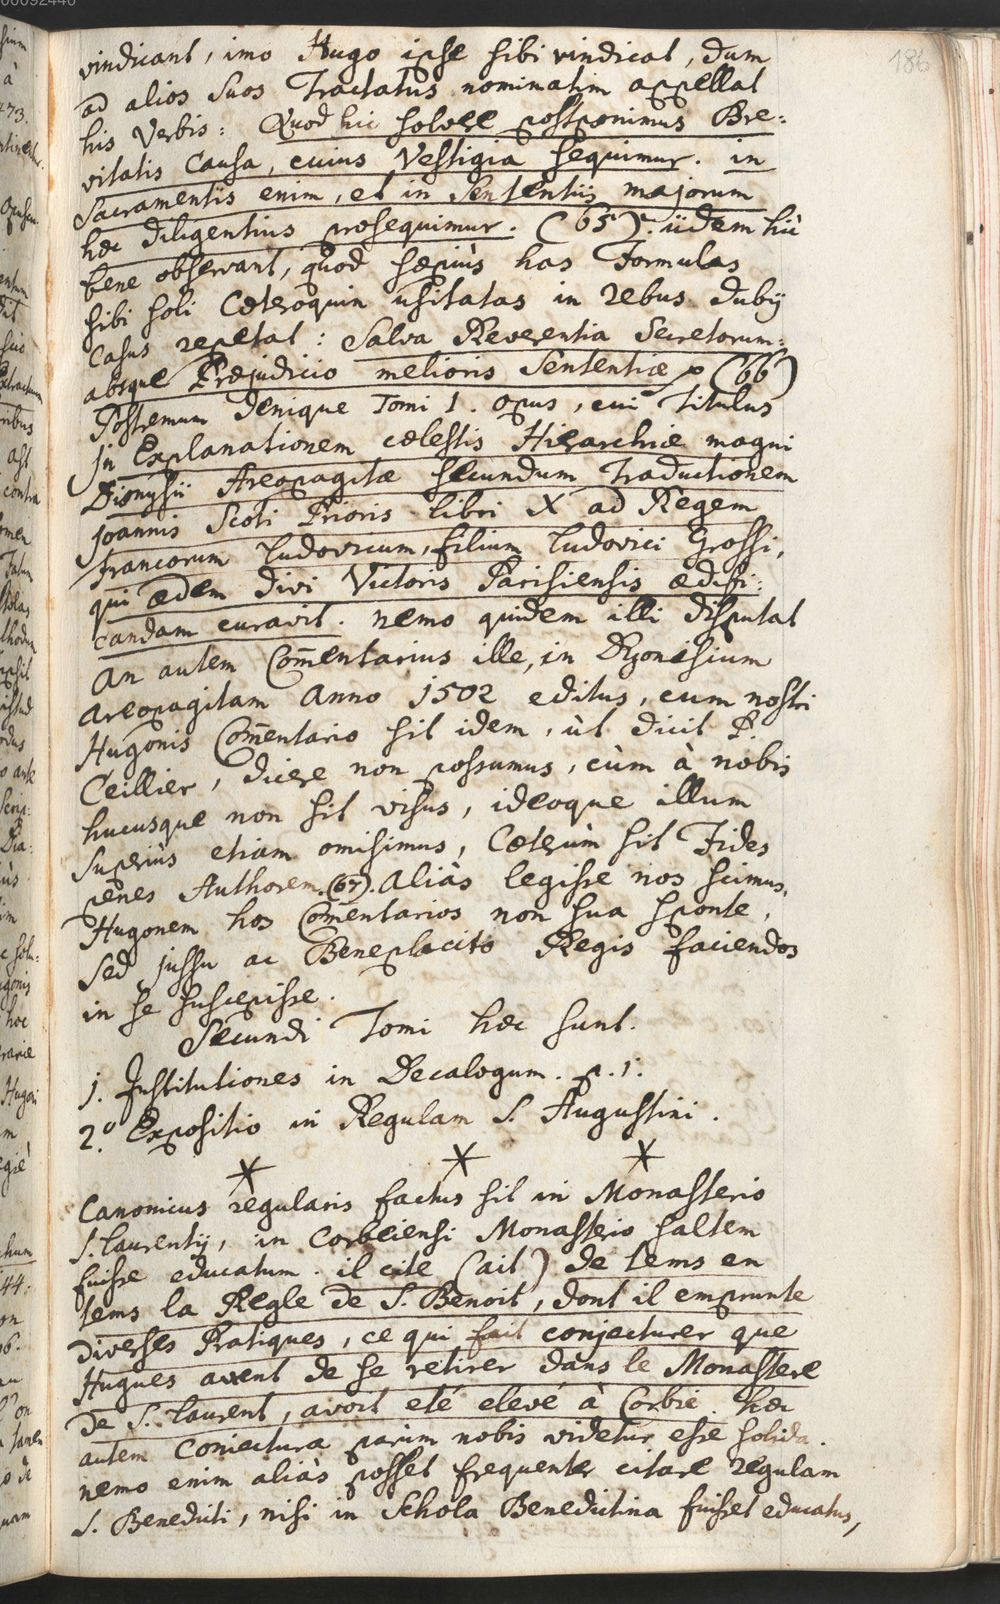 186
vindicant, imo Hugo ipse sibi vindicat, dum
ad alios suos Tractatus nominatim appellat
his Verbis: Quod hic solvere postponimus Bre:
vitatis Causa, cuius Vestigia sequimur. in
Sacramentis enim, et in Sententiis majorum
hæc diligentius prosequimur. (65). iidem hic
bene observant, quod sæpius has Formulas
sibi soli Cæteroquin usitatas in rebus dubij
Casus repetat: Salva Reverentia Secretorum:
absque Præjudicio melioris Sententiæ (66)
Postremum denique Tomi I. opus, cui Titulus
In Explanationem cælestis Hierarchiæ magni
Dionysii Areopagitæ secundum Traductionem
Joannis Scoti Prioris libri X ad Regem
francorum Ludovicum, filium Ludovici Grossi,
qui ædem Divi Victoris Parisiensis ædifi:
candam curavit. nemo quidem illi disputat
An autem Com̄entarius ille, in Dyonisium
Areopagitam Anno 1502 editus, cum nostri
Hugonis Com̄entario sit idem, ùt dicit P.
Ceillier, dicere non possumus, cùm à nobis
hucusque non sit visus, ideoque illum
Superiùs etiam omisimus, Cæterùm sit Fides
penes Authorem. (67). Aliàs legisse nos scimus,
Hugonem hos Com̄entarios non sua sponte,
Sed jussu ac Beneplacito Regis faciendos
in se suscepisse.
Secundi Tomi hæc sunt.
1. Institutiones in Decalogum. p. 1.
2.º Expositio in Regulam S. Augustini.
* * *
Canonicus regularis factus sit in Monasterio
S. Laurentij, in Corbeiensi Monasterio saltem
fuisse educatum. il cite (ait) de tems en
tems la Regle de S. Benoit, dont il emprunte
diverses Pratiques, ce qui fait conjecturer que
Hugues avent de se retirer dans le Monastere
de S. Laurent, avoit eté elevé à Corbie. hæc
autem Coniectura parum nobis videtur esse solida.
nemo enim aliàs posset frequenter citare regulam
S. Benedicti, nisi in Schola Benedictina fuisset educatus,